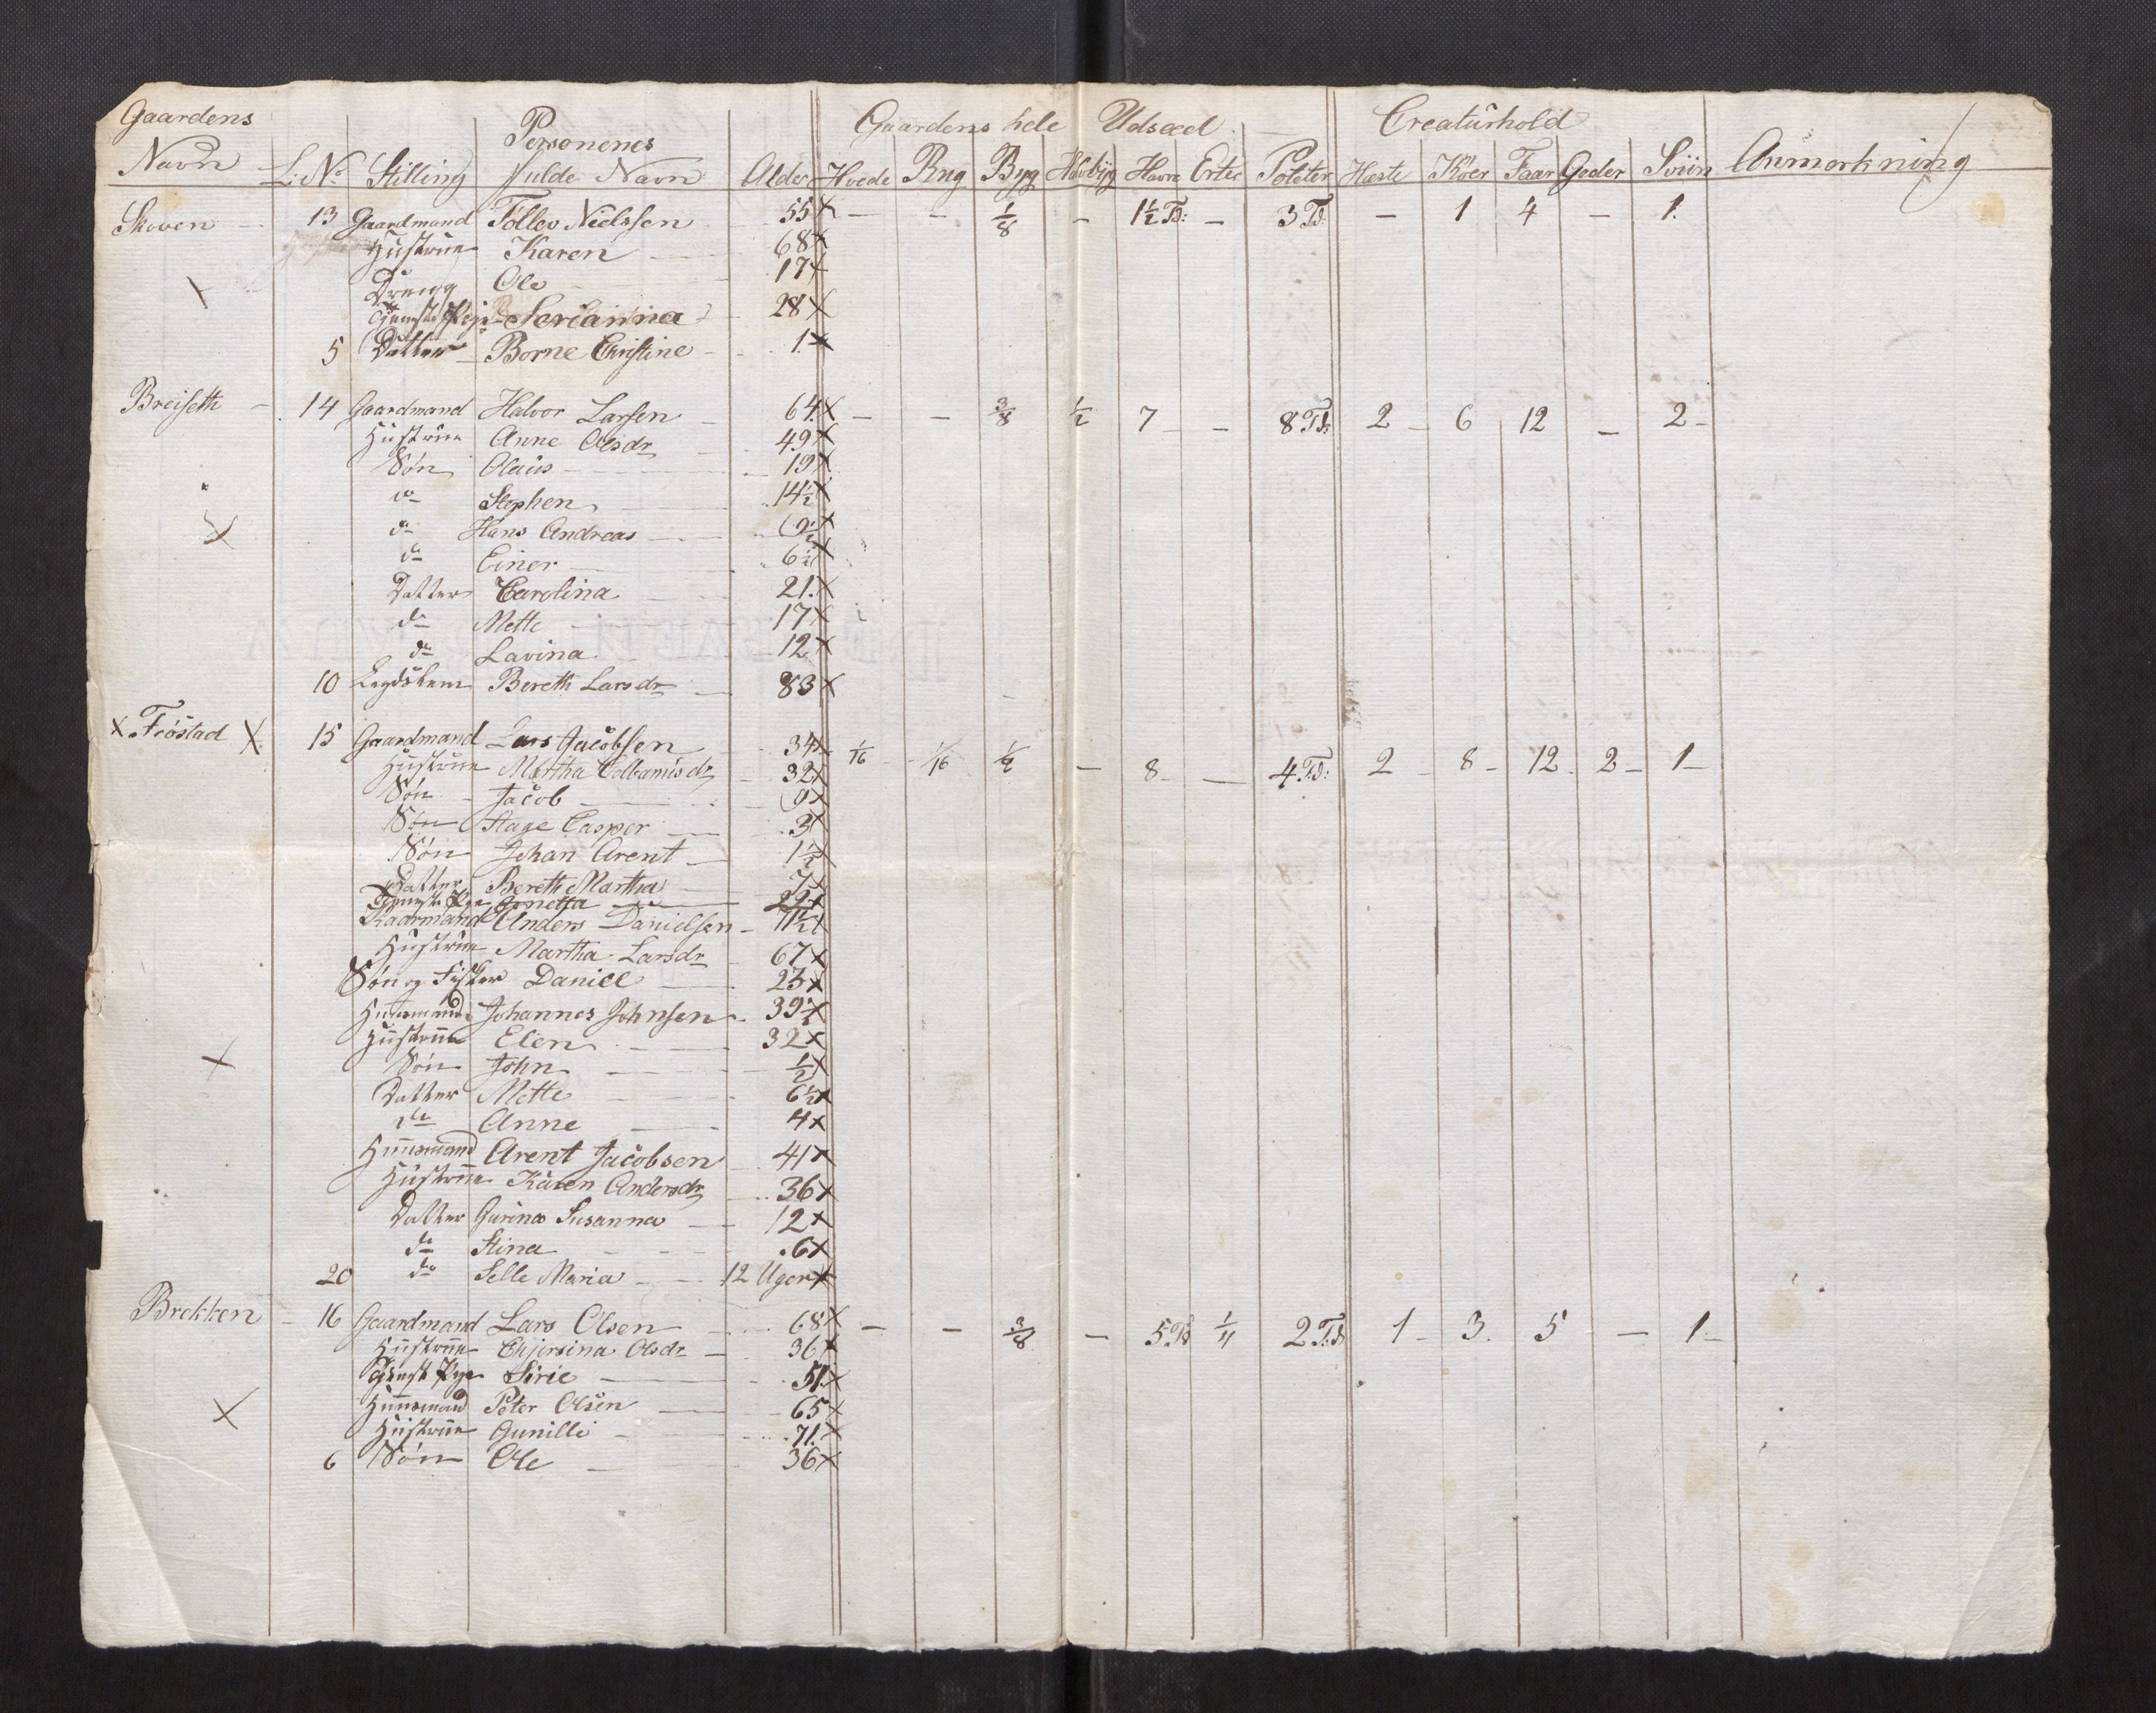 Gaardens Navn L: No Stilling Personenes fulde Navn Alder Gaardens hele Udsæd Creatùrhold
Hvede Rug Byg Havrbÿg Havre Erter Poteter Heste Köer Faar Geder Sviin Anmærkning
Skoven - 13 Gaardmand Tollev Nielssen 55 x - - 1/8 - 1½ Td: - 3 Td: - 1 4 - 1.
Hustrue Karen 68 x
Dreng Ole 17 x
Tjeneste Pige Serianna 28 x
5 Datter Borne Christine 1. x
Breiseth - 14 Gaardmand Halvor Larsen 64 x - - 3/8 ½ 7 - 8 Td: 2 - 6 12 - 2 -
Hustrue Anne Olsdr 49 x
Søn Olaùs 19 x
do Stephen 14½ x
do Hans Andreas 9½ x
do Einer 6½ x
Datter Carolina 21. x
do Mette 17 x
do Lavina 12 x
10 Legdslem Bereth Larsdr 83 x
x Frøstad x 15 Gaardmand Lars Jacobsen 34 x 1/16 - 1/16 ½ - 8 - - 4 Td: 2 - 8 - 12 - 2 - 1 -
Hustrue Martha dr 32 x
Søn Jacob 9 x
Søn Hage Casper 3 x
Søn Johan Arent 1½
Datter Bereth Martha 7 x
Tjeneste Pige 29 x
Kaarmand Anders Danielsen 71½
Hustrue Martha Larsdr 67 x
Søn og Fisker Daniel 23 x
Huusmand Johannes Johnsen 39½ x
Hustrue Elen 32 x
Søn John ½ x
Datter Mette 6½ x
do Anne 4 x
Huusmand Arent Jacobsen 41 x
Hustrue Karen Andersdr 36 x
Datter Gurina Susanna 12 x
do Stina 6 x
20 do Selle Maria 12 Uger x
Brekken - 16 Gaardmand Lars Olsen 68 x - - 3/8 - 5 Td ¼ 2 Td: 1 - 3. 5 - 1 -
Hustrue Olsdr 36 x
Tjenest Pige Sirie 51. x
Huusmand Peter Olsen 65 x
Hustrue Gunille 71. x
6 Søn Ole 36 x